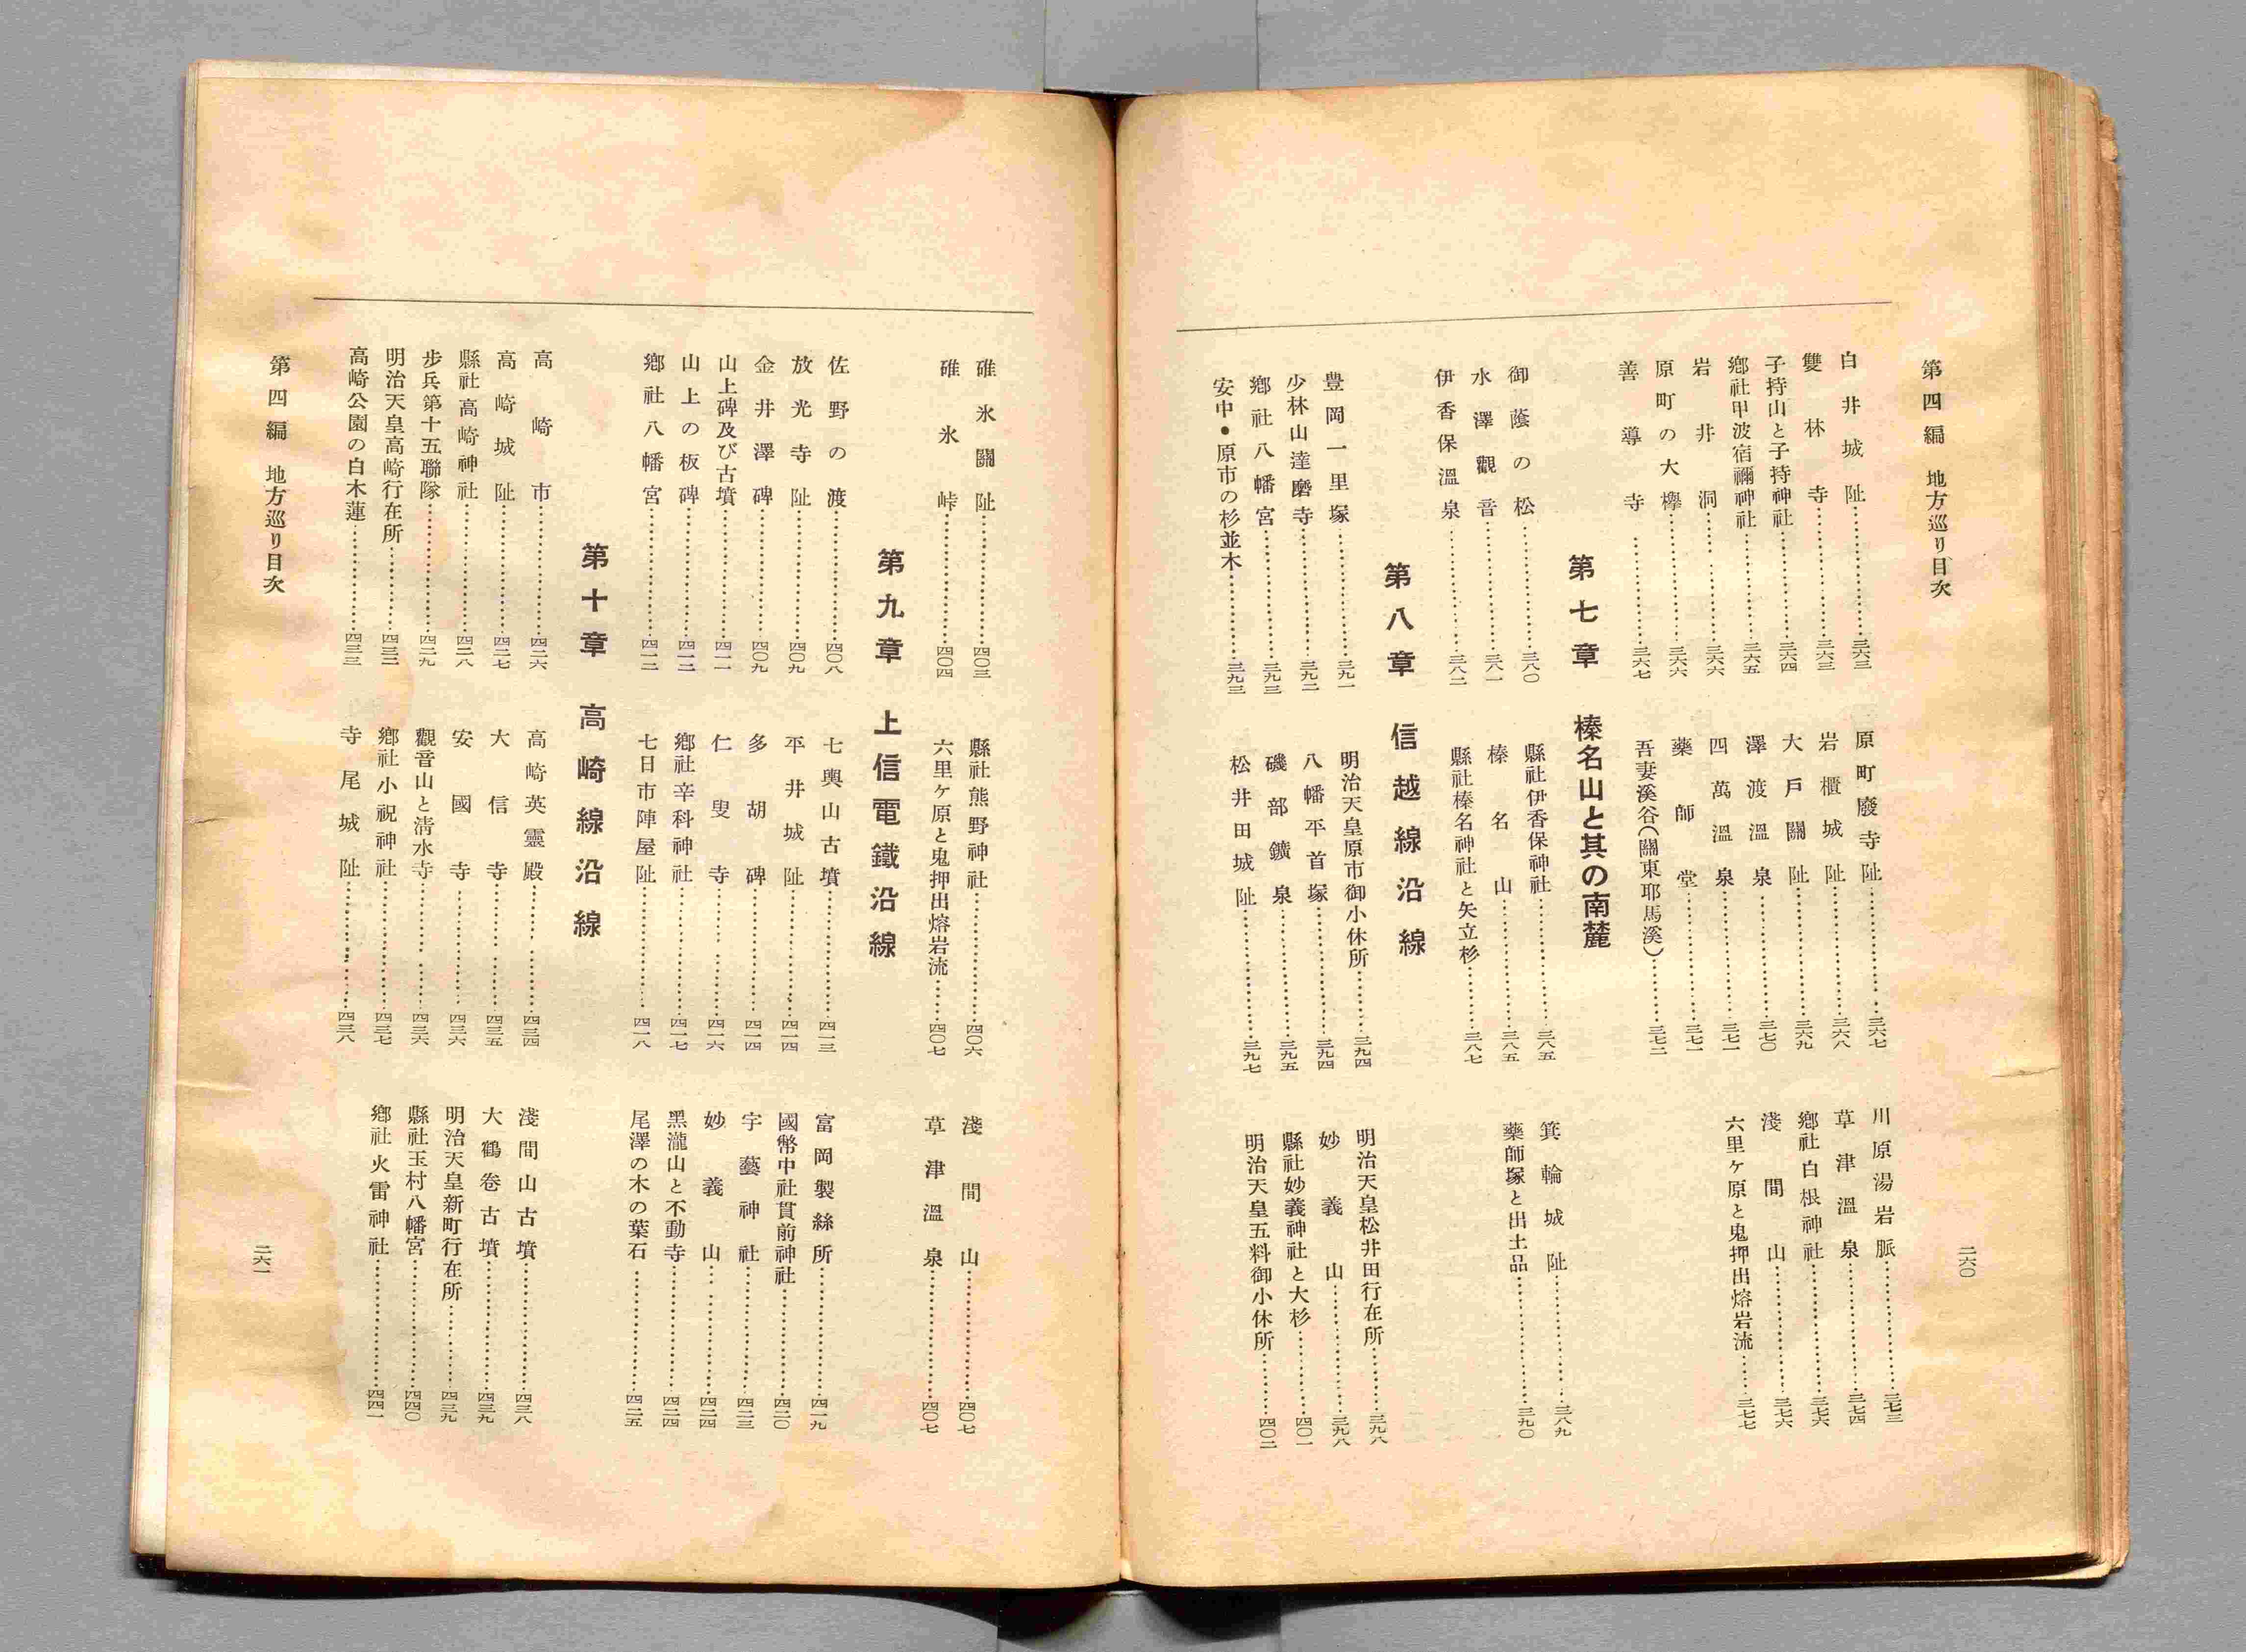 第四編 地方巡り目次
二六〇
白井城阯…………三六三
雙林寺…………三六三
子持山と子持神社…………三六四
鄕社甲波宿禰神社…………三六五
岩井洞…………三六六
原町の大欅…………三六六
善導寺…………三六七
原町廢寺阯…………三六七
岩櫃城阯…………三六八
大戶關阯…………三六九
澤渡溫泉…………三七〇
四萬溫泉…………三七一
藥師堂…………三七一
吾妻溪谷(關東耶馬溪)…………三七二
川原湯岩脈…………三七三
草津溫泉…………三七四
鄕社白根神社…………三七六
淺間山…………三七六
六里ケ原と鬼押出熔岩流…………三七七
第七章 榛名山と其の南麓
御蔭の松…………三八〇
水澤觀音…………三八一
伊香保溫泉…………三八二
縣社伊香保神社…………三八五
榛名山…………三八五
縣社榛名神社と矢立杉…………三八七
箕輪城阯…………三八九
藥師塚と出土品…………三九〇
第八章 信越線沿線
豊岡一里塚…………三九一
少林山達磨寺…………三九二
鄕社八幡宮…………三九三
安中・原市の杉並木…………三九三
明治天皇原市御小休所…………三九四
八幡平首塚…………三九四
磯部鑛泉…………三九五
松井田城阯…………三九七
明治天皇松井田行在所…………三九八
妙義山…………三九八
縣社妙義神社と大杉…………四〇一
明治天皇五料御小休所…………四〇二
碓氷關阯…………四〇三
碓氷峠…………四〇四
縣社熊野神社…………四〇六
六里ケ原と鬼押出熔岩流…………四〇七
淺間山…………四〇七
草津溫泉…………四〇七
第九章 上信電鐵沿線
佐野の渡…………四〇八
放光寺阯…………四〇九
金井澤碑…………四〇九
山上碑及び古墳…………四一一
山上の板碑…………四一二
鄕社八幡宮…………四一二
七輿山古墳…………四一三
平井城阯…………四一四
多胡碑…………四一四
仁叟寺…………四一六
鄕社辛科神社…………四一七
七日市陣屋阯…………四一八
富岡製絲所…………四一九
國幣中社貫前神社…………四二〇
宇藝神社…………四二三
妙義山…………四二四
黑瀧山と不動寺…………四二四
尾澤の木の葉石…………四二五
第十章 高崎線沿線
高崎市…………四二六
高崎城阯…………四二七
縣社高崎神社…………四二八
步兵第十五聯隊…………四二九
明治天皇高崎行在所…………四三二
高崎公園の白木蓮…………四三三
高崎英靈殿…………四三四
大信寺…………四三五
安國寺…………四三六
觀音山と淸水寺…………四三六
鄕社小祝神社…………四三七
寺尾城阯…………四三八
淺間山古墳…………四三八
大鶴卷古墳…………四三九
明治天皇新町行在所…………四三九
縣社玉村八幡宮…………四四〇
鄕社火雷神社…………四四一
第四編 地方巡り目次
二六一